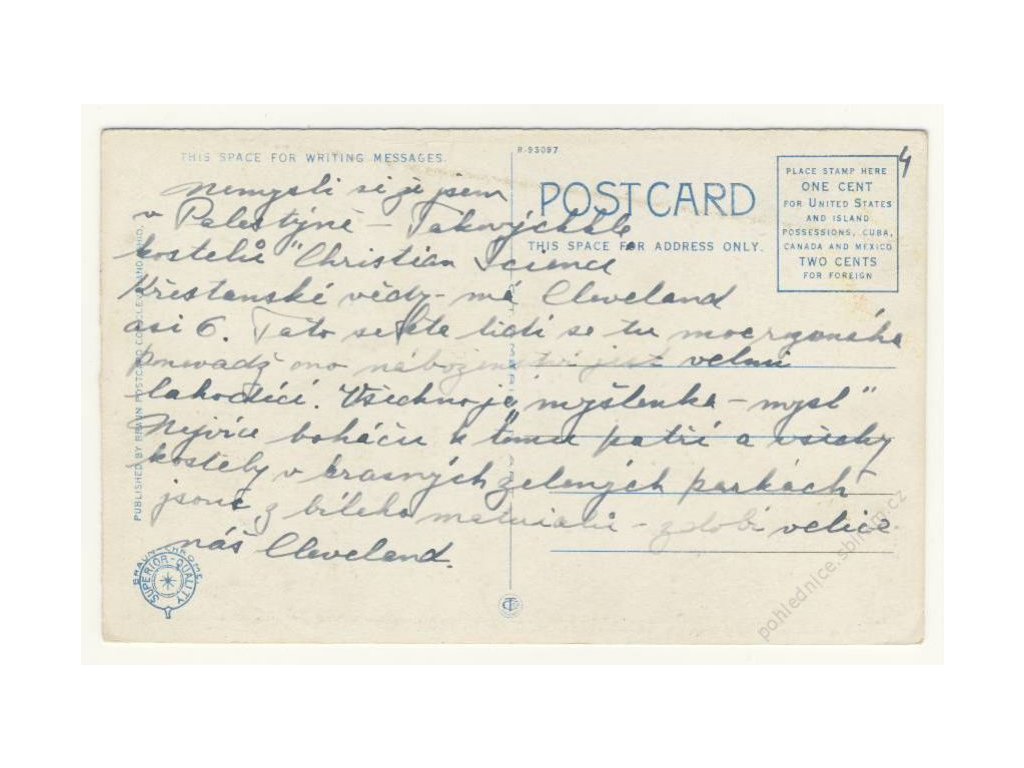 THIS SPACE FOR WRITING MESSAGES.
R-93097
4
POST CARD
THIS SPACE FOR ADDRESS ONLY.
PLACE STAMP HERE
ONE CENT
FOR UNITED STATES
AND ISLAND
POSSESSIONS, CUBA,
CANADA AND MEXICO
TWO CENTS
FOR FOREIGN
Nemysli si že jsem
v Palestýně – Takovýchhle
kostelů "Christian Science
Křestanské vědy – má Cleveland
asi 6. Tato sekta lidí se tu moc
ponevadž ono náboženství jest velmi
lahodící. Všechno je myšlenka – mysl"
Nejvíce boháču k tomu patří a všechy
kostely v krasných zelených parkách
jsouc z bíleho materialu – zdobí velice
náš Cleveland.
PUBLISHED BY BRAUN POST CARD CO., CLEVELAND, OHIO.
BRAUN-CHROME
SUPERIOR-QUALITY
CT
pohlednice.sbiram.cz